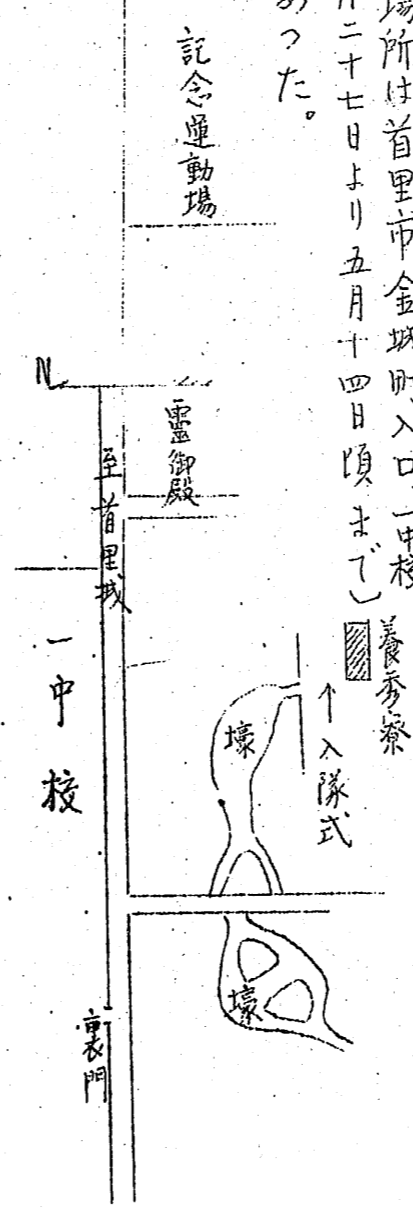 場所は首里市金城町入口、一中校
月二十七日より五月十四日頃まで)
あつた。
養秀寮
記念運動場
N
霊御殿
至首里城
一中校
壕
↑入隊式
壕
裏門